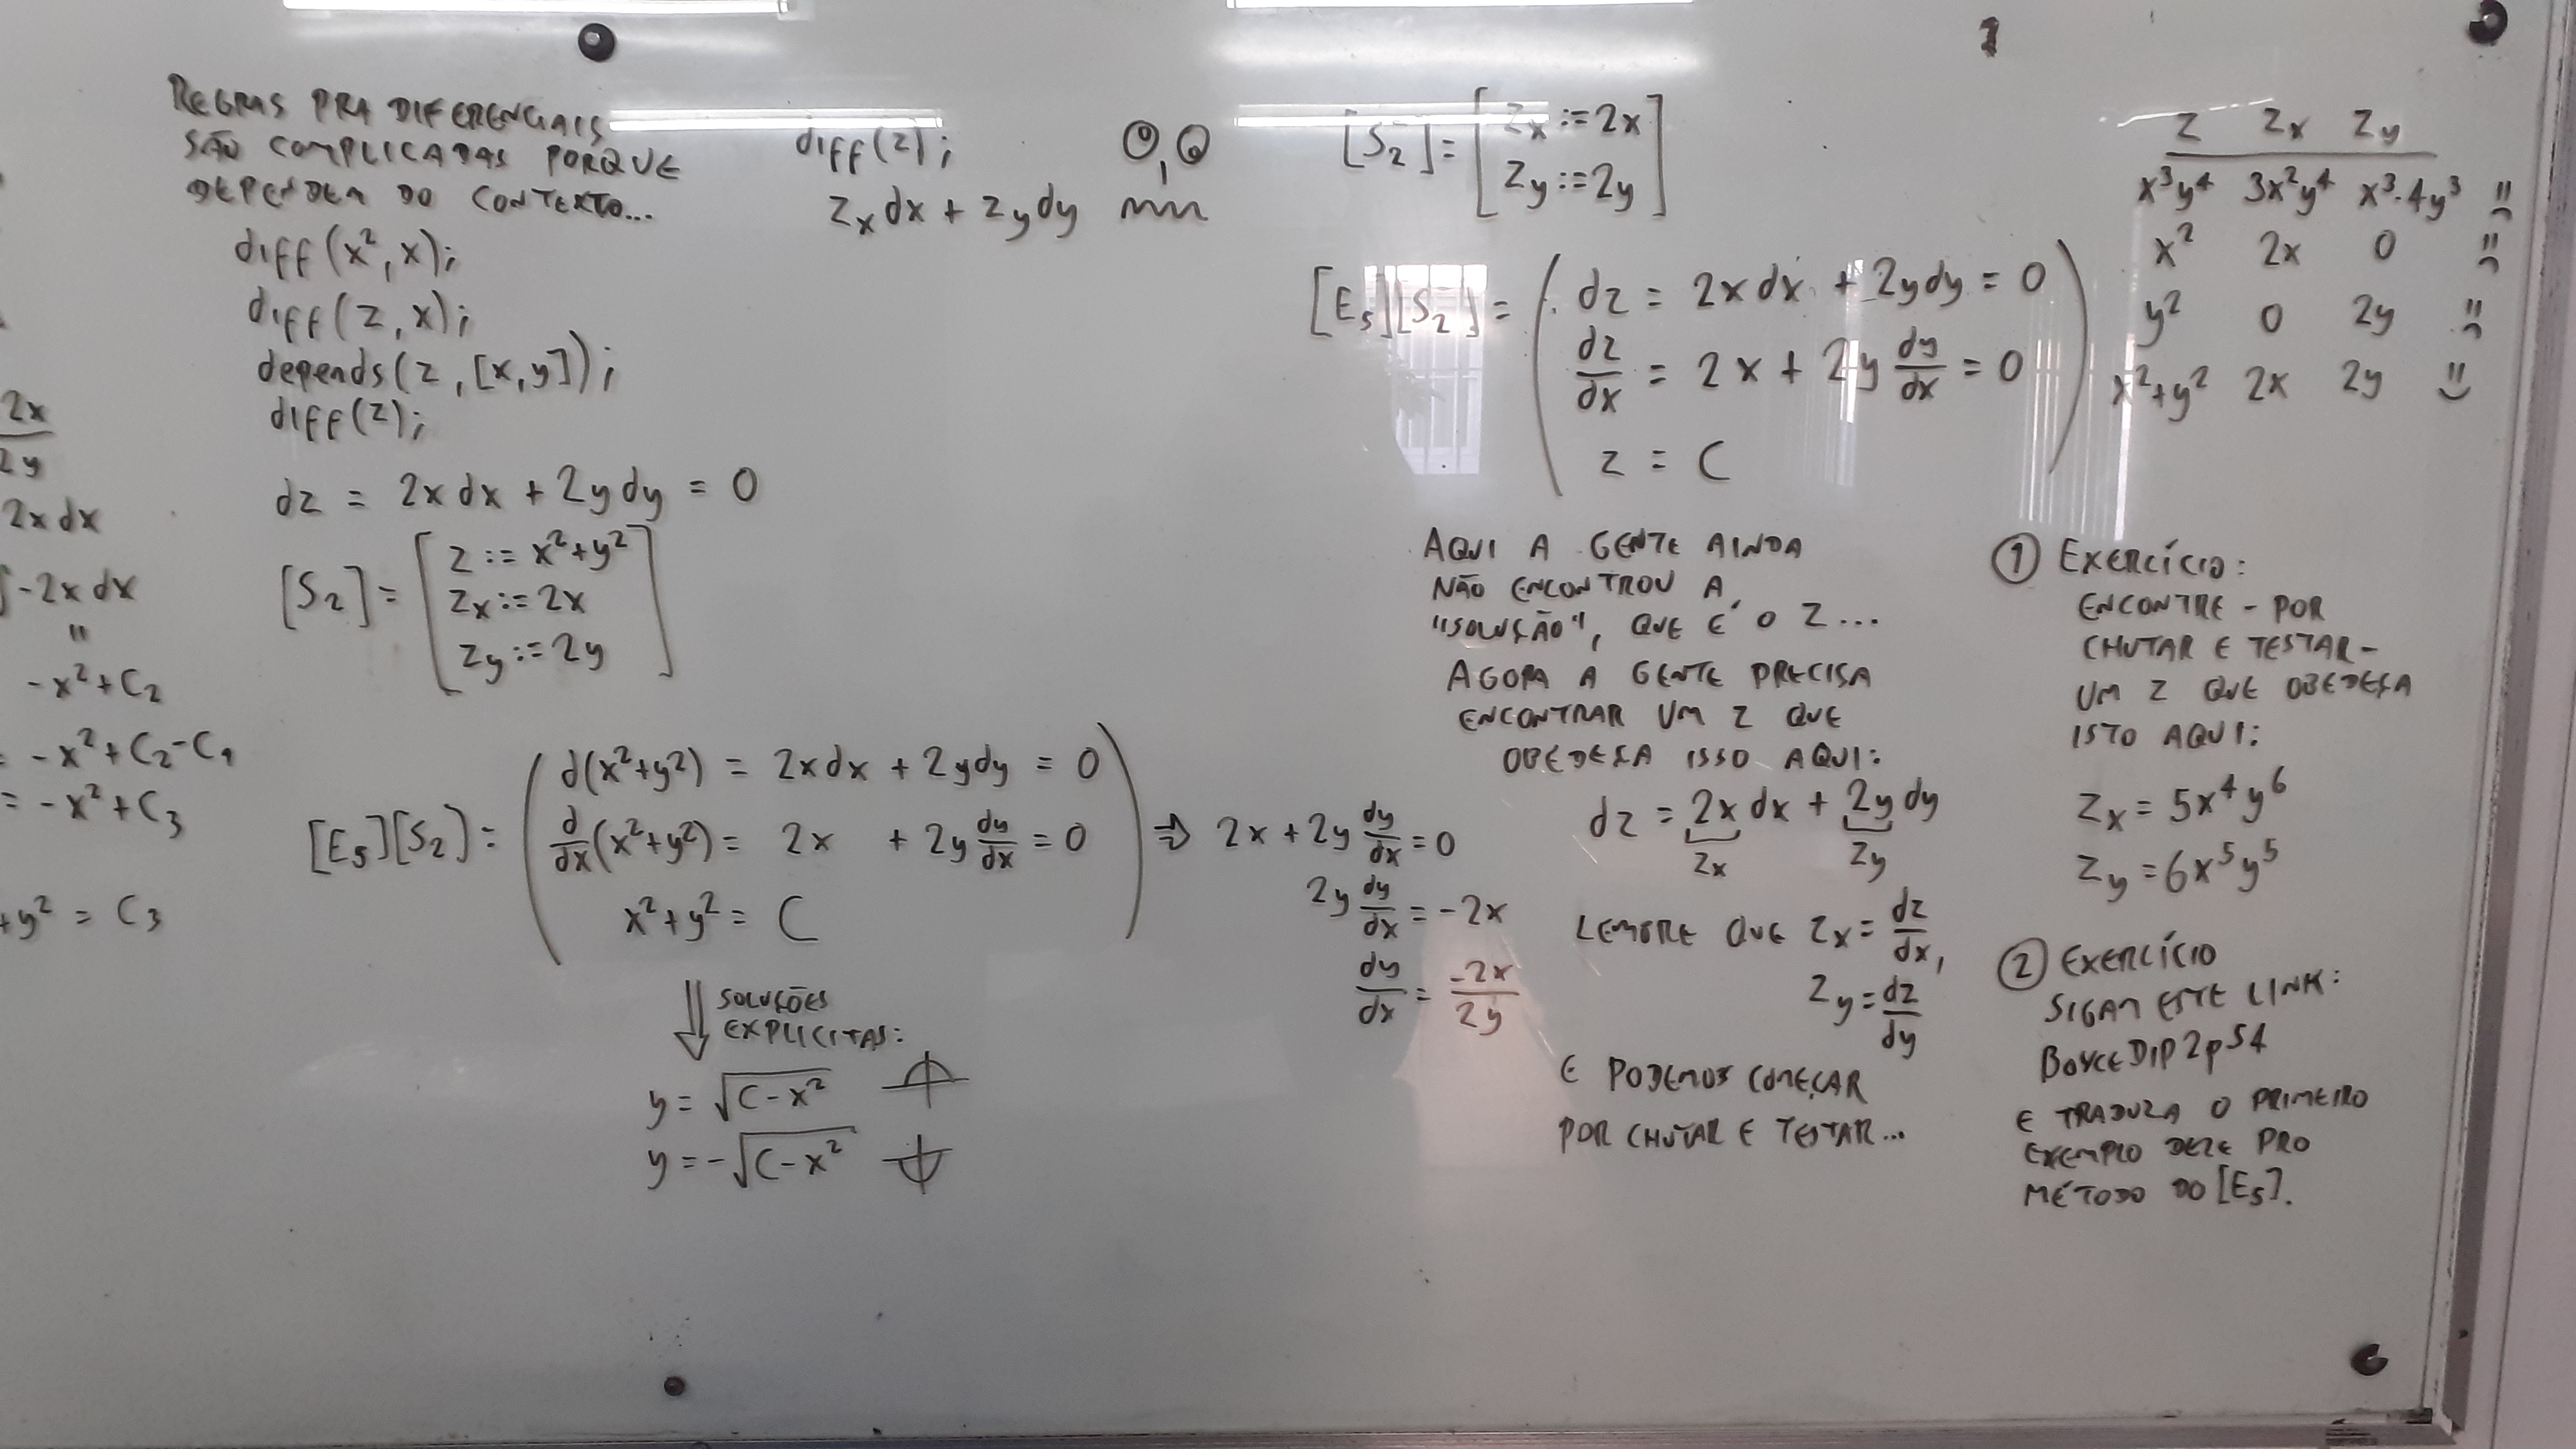 2x
2y
2x dx
∫-2x dx
"
-x²+C₂
= -x²+C₂-C₁
= -x²+C₃
+y² = C₃
REGRAS PRA DIFERENCIAIS
SÃO COMPLICADAS PORQUE
DEPENDEM DO CONTEXTO...
diff(x²,x);
diff(z,x);
depends(z,[x,y]);
diff(z);
dz = 2x dx + 2y dy = 0
[S₂] = [ z := x²+y²
zx := 2x
zy := 2y ]
[E₅][S₂] = ( d(x²+y²) = 2xdx + 2ydy = 0
d/dx (x²+y²) = 2x + 2y dy/dx = 0
x²+y² = C )
⇓ SOLUÇÕES
EXPLÍCITAS:
y = √(C-x²)
y = -√(C-x²)
diff(z);
zx dx + zy dy
⇒ 2x + 2y dy/dx = 0
2y dy/dx = -2x
dy/dx = -2x/2y
[S₂] = [ zx := 2x
zy := 2y ]
[E₅][S₂] = ( dz = 2x dx + 2y dy = 0
dz/dx = 2x + 2y dy/dx = 0
z = C )
AQUI A GENTE AINDA
NÃO ENCONTROU A
"SOLUÇÃO", QUE É O Z...
AGORA A GENTE PRECISA
ENCONTRAR UM Z QUE
OBEDEÇA ISSO AQUI:
dz = 2x dx + 2y dy
zx zy
LEMBRE QUE zx = dz/dx,
zy = dz/dy
E PODEMOS COMEÇAR
POR CHUTAR E TESTAR...
z zx zy
x³y⁴ 3x²y⁴ x³·4y³ =(
x² 2x 0 =(
y² 0 2y =(
x²+y² 2x 2y =)
① EXERCÍCIO:
ENCONTRE - POR
CHUTAR E TESTAR -
UM Z QUE OBEDEÇA
ISTO AQUI:
zx = 5x⁴y⁶
zy = 6x⁵y⁵
② EXERCÍCIO
SIGAM ESTE LINK:
BoyceDIP2p54
E TRADUZA O PRIMEIRO
EXEMPLO DELE PRO
MÉTODO DO [E₅].